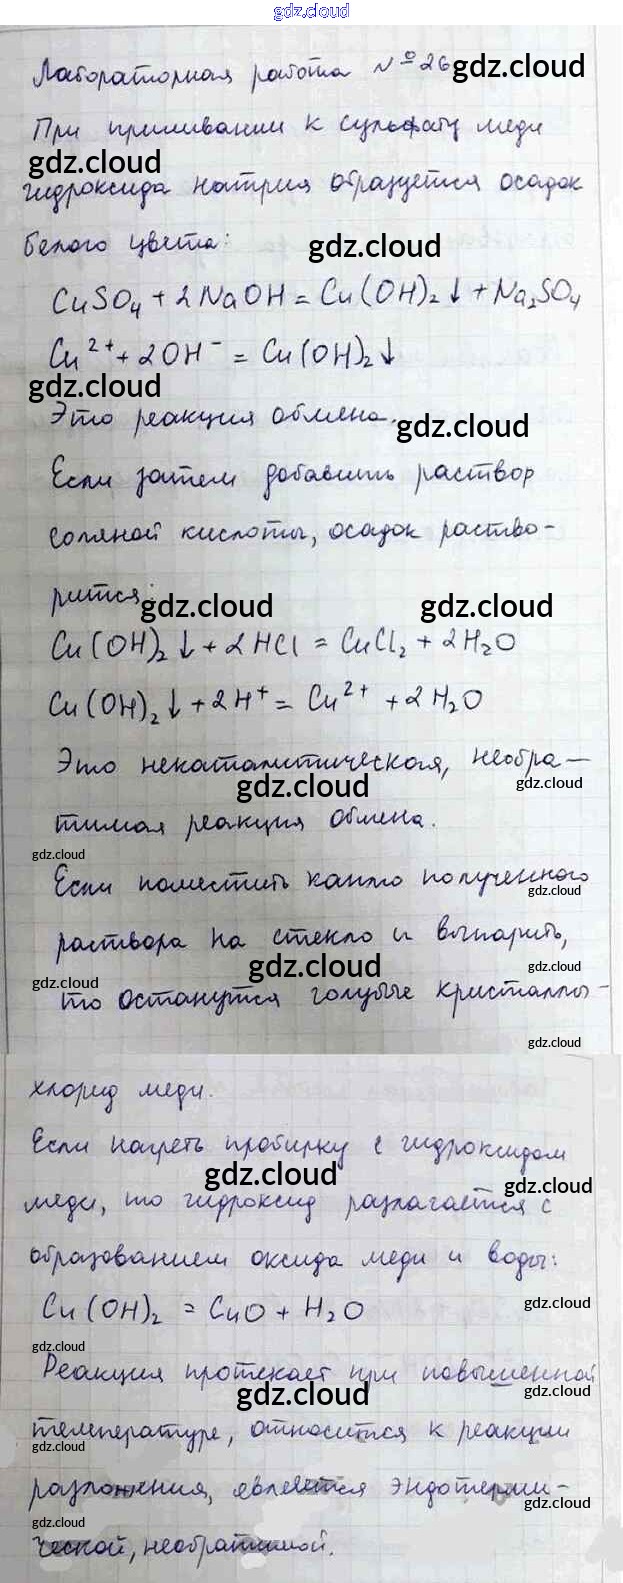 gdz.cloud
Лабораторная работа №26 gdz.cloud
При приливании к сульфату меди
gdz.cloud
гидроксида натрия образуется осадок
белого цвета: gdz.cloud
CuSO₄ + 2NaOH = Cu(OH)₂↓ + Na₂SO₄
Cu²⁺ + 2OH⁻ = Cu(OH)₂↓
gdz.cloud
Это реакция обмена. gdz.cloud
Если затем добавить раствор
соляной кислоты, осадок раство-
рится: gdz.cloud gdz.cloud
Cu(OH)₂↓ + 2HCl = CuCl₂ + 2H₂O
Cu(OH)₂↓ + 2H⁺ = Cu²⁺ + 2H₂O
Это некаталитическая, необра-
gdz.cloud gdz.cloud
тимая реакция обмена.
gdz.cloud
Если поместить каплю полученного
gdz.cloud
раствора на стекло и выпарить,
gdz.cloud gdz.cloud
gdz.cloud
то останутся голубые кристаллы-
gdz.cloud
хлорид меди.
Если нагреть пробирку с гидроксидом
gdz.cloud gdz.cloud
меди, то гидроксид разлагается с
образованием оксида меди и воды:
Cu(OH)₂ = CuO + H₂O gdz.cloud
gdz.cloud
Реакция протекает при повышенной
gdz.cloud gdz.cloud
температуре, относится к реакции
gdz.cloud
разложения, является эндотерми-
gdz.cloud
gdz.cloud
ческой, необратимой.
gdz.cloud